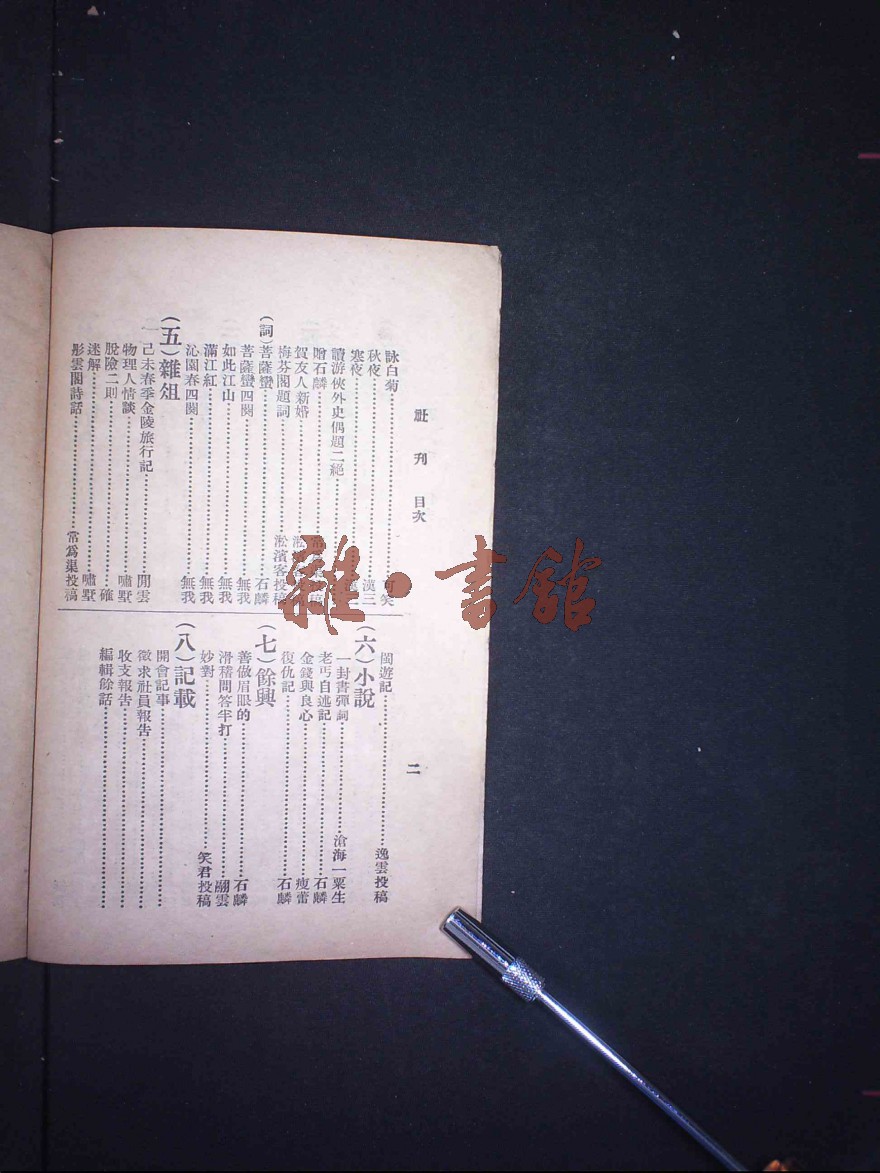 社刊目次
二
詠白菊……笑
秋夜……漢三
寒夜……
讀游俠外史偶題二絕……
贈石麟……稿
賀友人新婚……淞
梅芬閣題詞……淞濱客投稿
(詞)菩薩蠻……石麟
菩薩蠻四闋……無我
如此江山……無我
滿江紅……無我
沁園春四闋……無我
(五)雜俎
一己未春季金陵旅行記……閒雲
物理人情談……嘯墅
脫險二則……確
迷解……嘯墅
彤雲閣詩話……常爲渠投稿
閩遊記……逸雲投稿
(六)小說
一封書彈詞……滄海一粟生
老丐自述記……石麟
金錢與良心……瘦蕾
復仇記……石麟
(七)餘興
善做眉眼的……石麟
滑稽問答半打……關雲
妙對……笑君投稿
(八)記載
開會記事……
徵求社員報告……
收支報告……
編輯餘話……
雜·書館